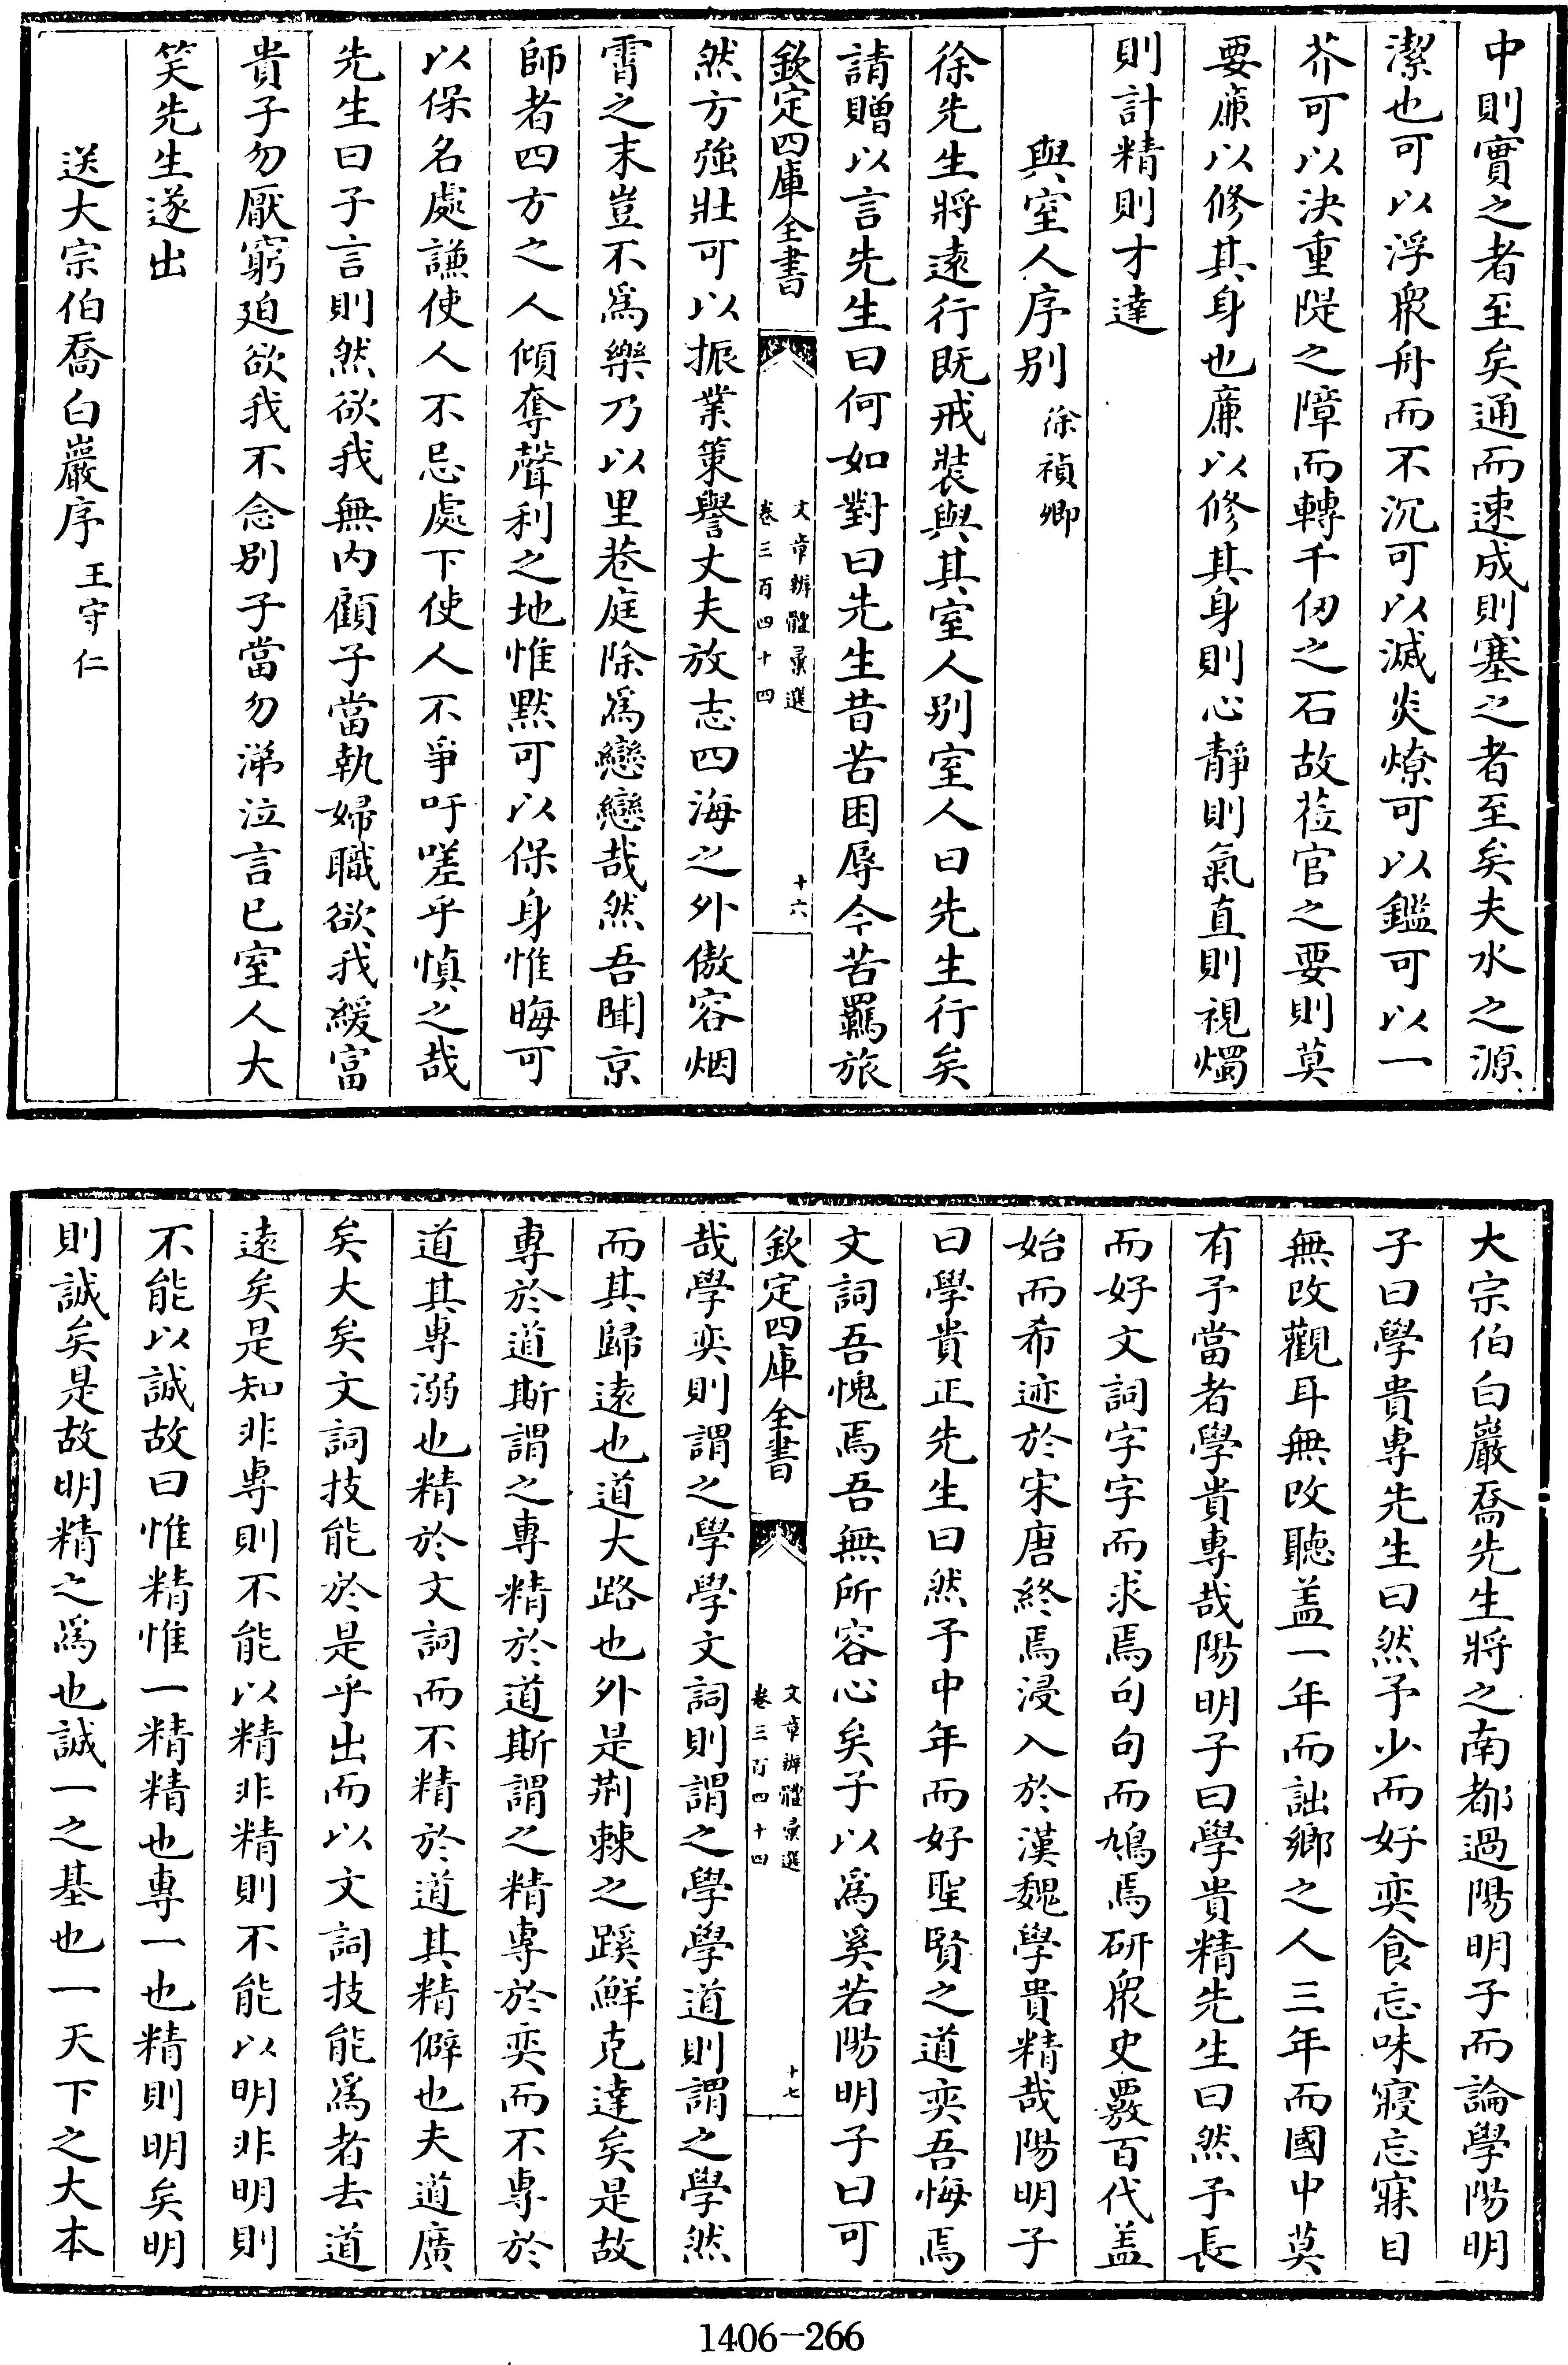 中則實之者至矣通而速成則塞之者至矣夫水之源
潔也可以浮衆舟而不沉可以滅炎燎可以鑑可以一
芥可以決重隄之障而轉千仞之石故蒞官之要則莫
要㢘以修其身也㢘以修其身則心靜則氣直則視燭
則計精則才達
與室人序别 徐禎卿
徐先生將遠行既戒裝與其室人别室人曰先生行矣
請贈以言先生曰何如對曰先生昔苦困辱今苦羈旅
欽定四庫全書
文章辨體彚選
卷三百四十四
十六
然方強壯可以振業策譽丈夫放志四海之外傲容烟
霄之末豈不爲樂乃以里巷庭除爲戀戀哉然吾聞京
師者四方之人傾奪聲利之地惟黙可以保身惟晦可
以保名處謙使人不忌處下使人不爭吁嗟乎慎之哉
先生曰子言則然欲我無内顧子當執婦職欲我緩富
貴子勿厭窮廹欲我不念别子當勿涕泣言已室人大
笑先生遂出
送大宗伯喬白巖序 王守仁
大宗伯白巖喬先生將之南都過陽明子而論學陽明
子曰學貴専先生曰然予少而好奕食忘味寢忘寐目
無改觀耳無改聽盖一年而詘鄉之人三年而國中莫
有予當者學貴専哉陽明子曰學貴精先生曰然予長
而好文詞字字而求焉句句而鳩焉研衆史覈百代盖
始而希迹於宋唐終焉浸入於漢魏學貴精哉陽明子
曰學貴正先生曰然予中年而好聖賢之道奕吾悔焉
文詞吾愧焉吾無所容心矣子以爲奚若陽明子曰可
欽定四庫全書
文章辨體彚選
卷三百四十四
十七
哉學奕則謂之學學文詞則謂之學學道則謂之學然
而其歸遠也道大路也外是荆棘之蹊鮮克達矣是故
専於道斯謂之専精於道斯謂之精専於奕而不専於
道其専溺也精於文詞而不精於道其精僻也夫道廣
矣大矣文詞技能於是乎出而以文詞技能爲者去道
遠矣是知非専則不能以精非精則不能以明非明則
不能以誠故曰惟精惟一精精也専一也精則明矣明
則誠矣是故明精之爲也誠一之基也一天下之大本
1406-266